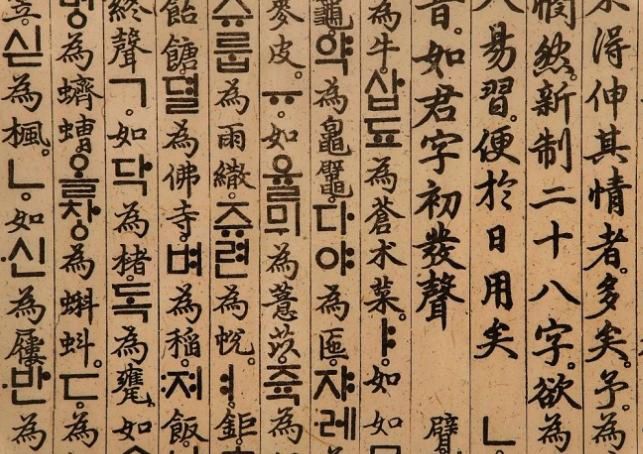 得伸其情者。多矣。予。為
憫然。新制二十八字。欲為
易習。便於日用矣 ㄴ
音。如君字初發聲 譬
為牛。삽됴為蒼朮菜。ㅑ。如如
龜。약為鼊。다야為匜。쟈래
麥皮。ㅠ。如율믜為薏苡。쥭為
슈룹為雨繖。쥬련為帨。ㅕ。鉅
飴餹。뎔為佛寺。벼為稻。져飯
終聲ㄱ。如닥為楮。독為甕。如
벙為蠐螬。올창為蝌蚪。ㄷ。為
싣為楓。ㄴ。如신為屨。반為